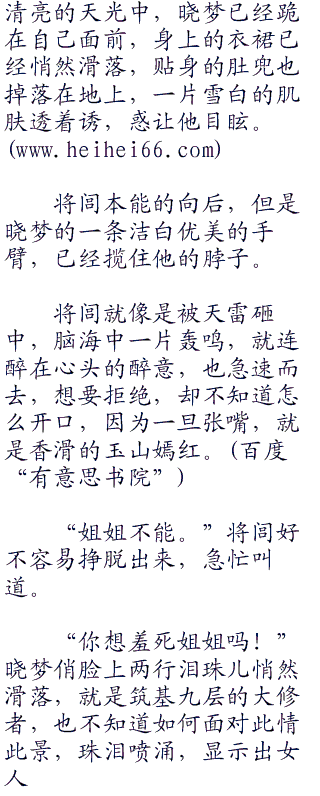 清亮的天光中，晓梦已经跪
在自己面前，身上的衣裙已
经悄然滑落，贴身的肚兜也
掉落在地上，一片雪白的肌
肤透着诱，惑让他目眩。
(www.heihei66.com)
将闾本能的向后，但是
晓梦的一条洁白优美的手
臂，已经揽住他的脖子。
将闾就像是被天雷砸
中，脑海中一片轰鸣，就连
醉在心头的醉意，也急速而
去，想要拒绝，却不知道怎
么开口，因为一旦张嘴，就
是香滑的玉山嫣红。(百度
“有意思书院”)
“姐姐不能。”将闾好
不容易挣脱出来，急忙叫
道。
“你想羞死姐姐吗！”
晓梦俏脸上两行泪珠儿悄然
滑落，就是筑基九层的大修
者，也不知道如何面对此情
此景，珠泪喷涌，显示出女
人